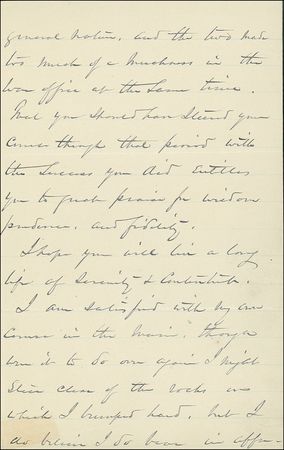 general nation, and the two made
too much of a muchness in the
war office at the same time.
That you should have steered your
course through that period with
the success you did entitles
you to great praise for wisdom
prudence, and fidelity.
I hope you will live a long
life of serenity &
I am satisfied with my own
course in the main, though
were it to do over again I might
steer clear of the rocks on
which I bumped hard, but I
do believe I do bear in